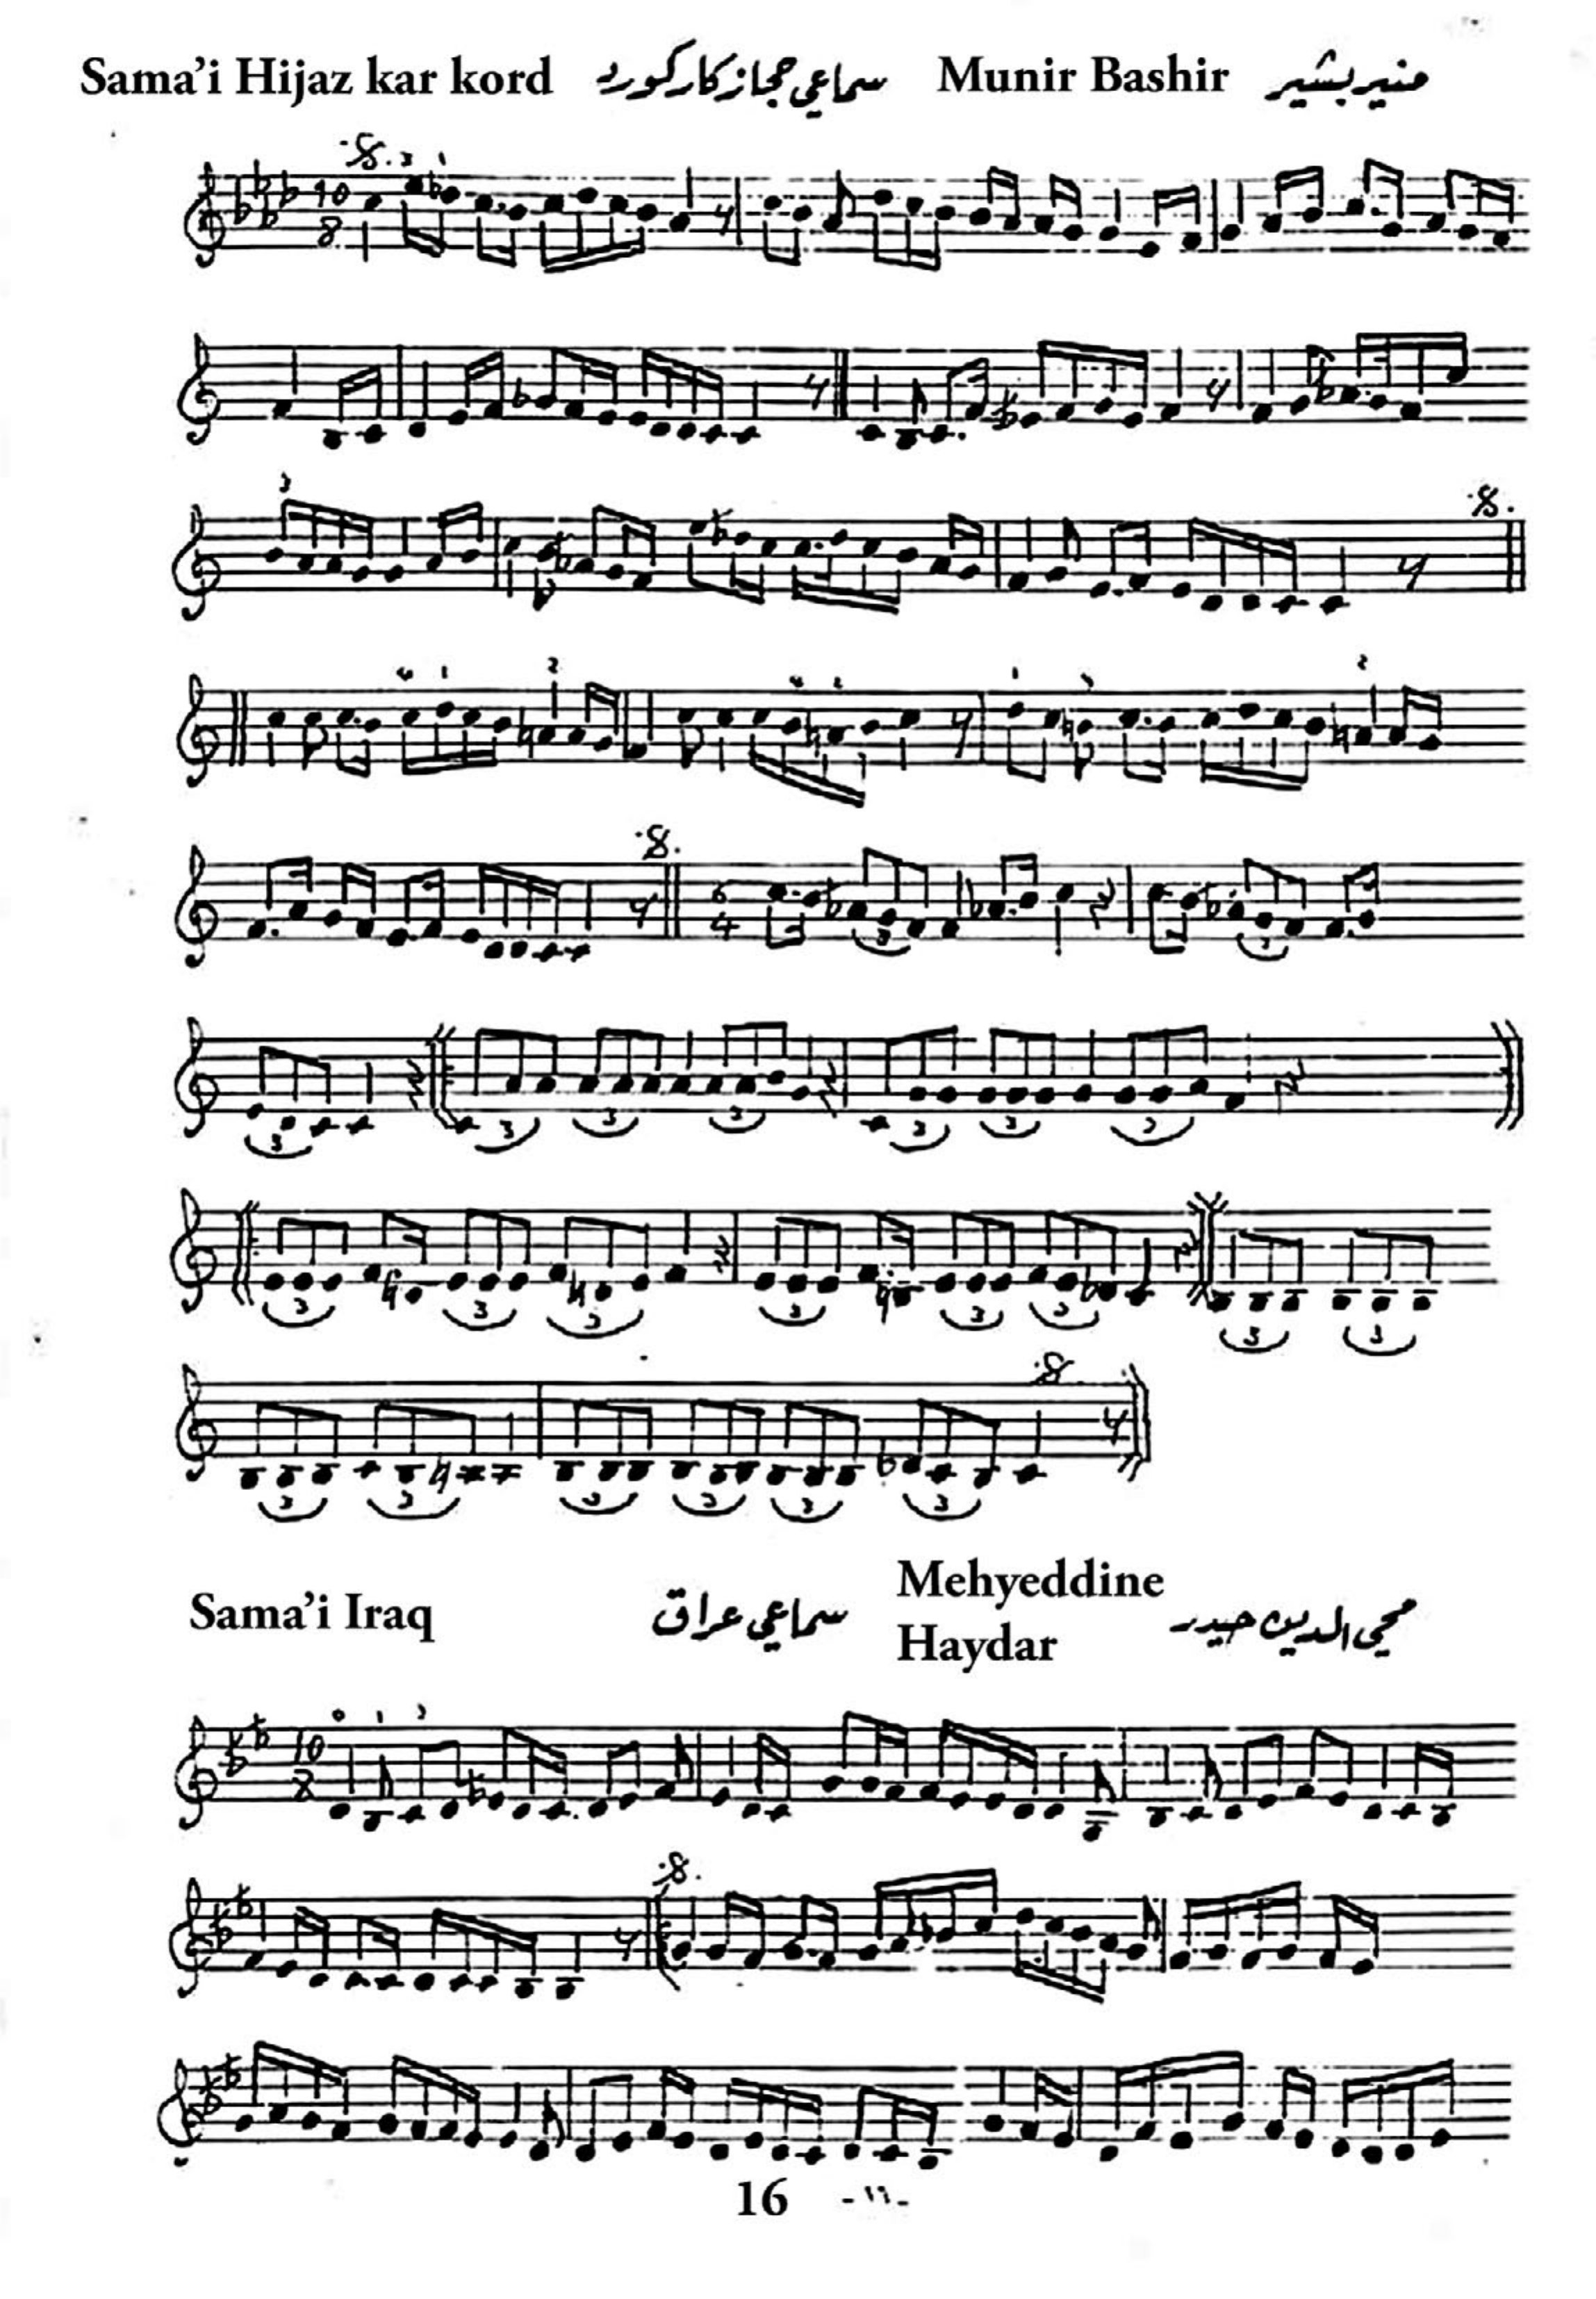 Sama'i Hijaz kar kord سماعي حجاز كار كورد Munir Bashir منير بشير
10
8
6
4
Sama'i Iraq سماعي عراق Mehyeddine Haydar محي الدين حيدر
10
8
16 -١٦-